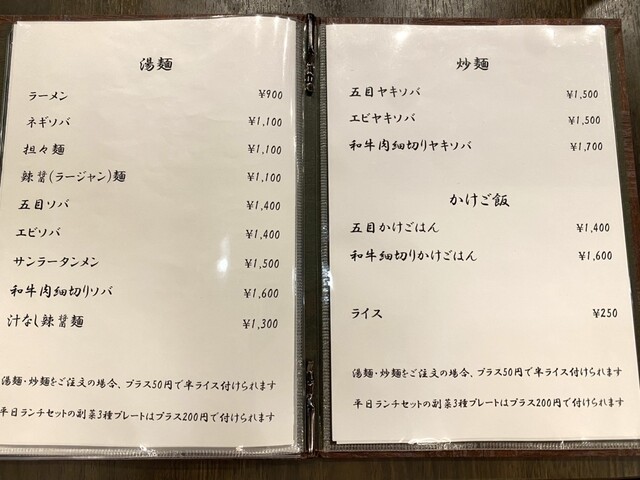 湯麺
ラーメン ¥900
ネギソバ ¥1,100
担々麺 ¥1,100
辣醤(ラージャン)麺 ¥1,100
五目ソバ ¥1,400
エビソバ ¥1,400
サンラータンメン ¥1,500
和牛肉細切りソバ ¥1,600
汁なし辣醤麺 ¥1,300
湯麺・炒麺をご注文の場合、プラス50円で半ライス付けられます
平日ランチセットの副菜3種プレートはプラス200円で付けられます
炒麺
五目ヤキソバ ¥1,500
エビヤキソバ ¥1,500
和牛肉細切りヤキソバ ¥1,700
かけご飯
五目かけごはん ¥1,400
和牛細切りかけごはん ¥1,600
ライス ¥250
湯麺・炒麺をご注文の場合、プラス50円で半ライス付けられます
平日ランチセットの副菜3種プレートはプラス200円で付けられます